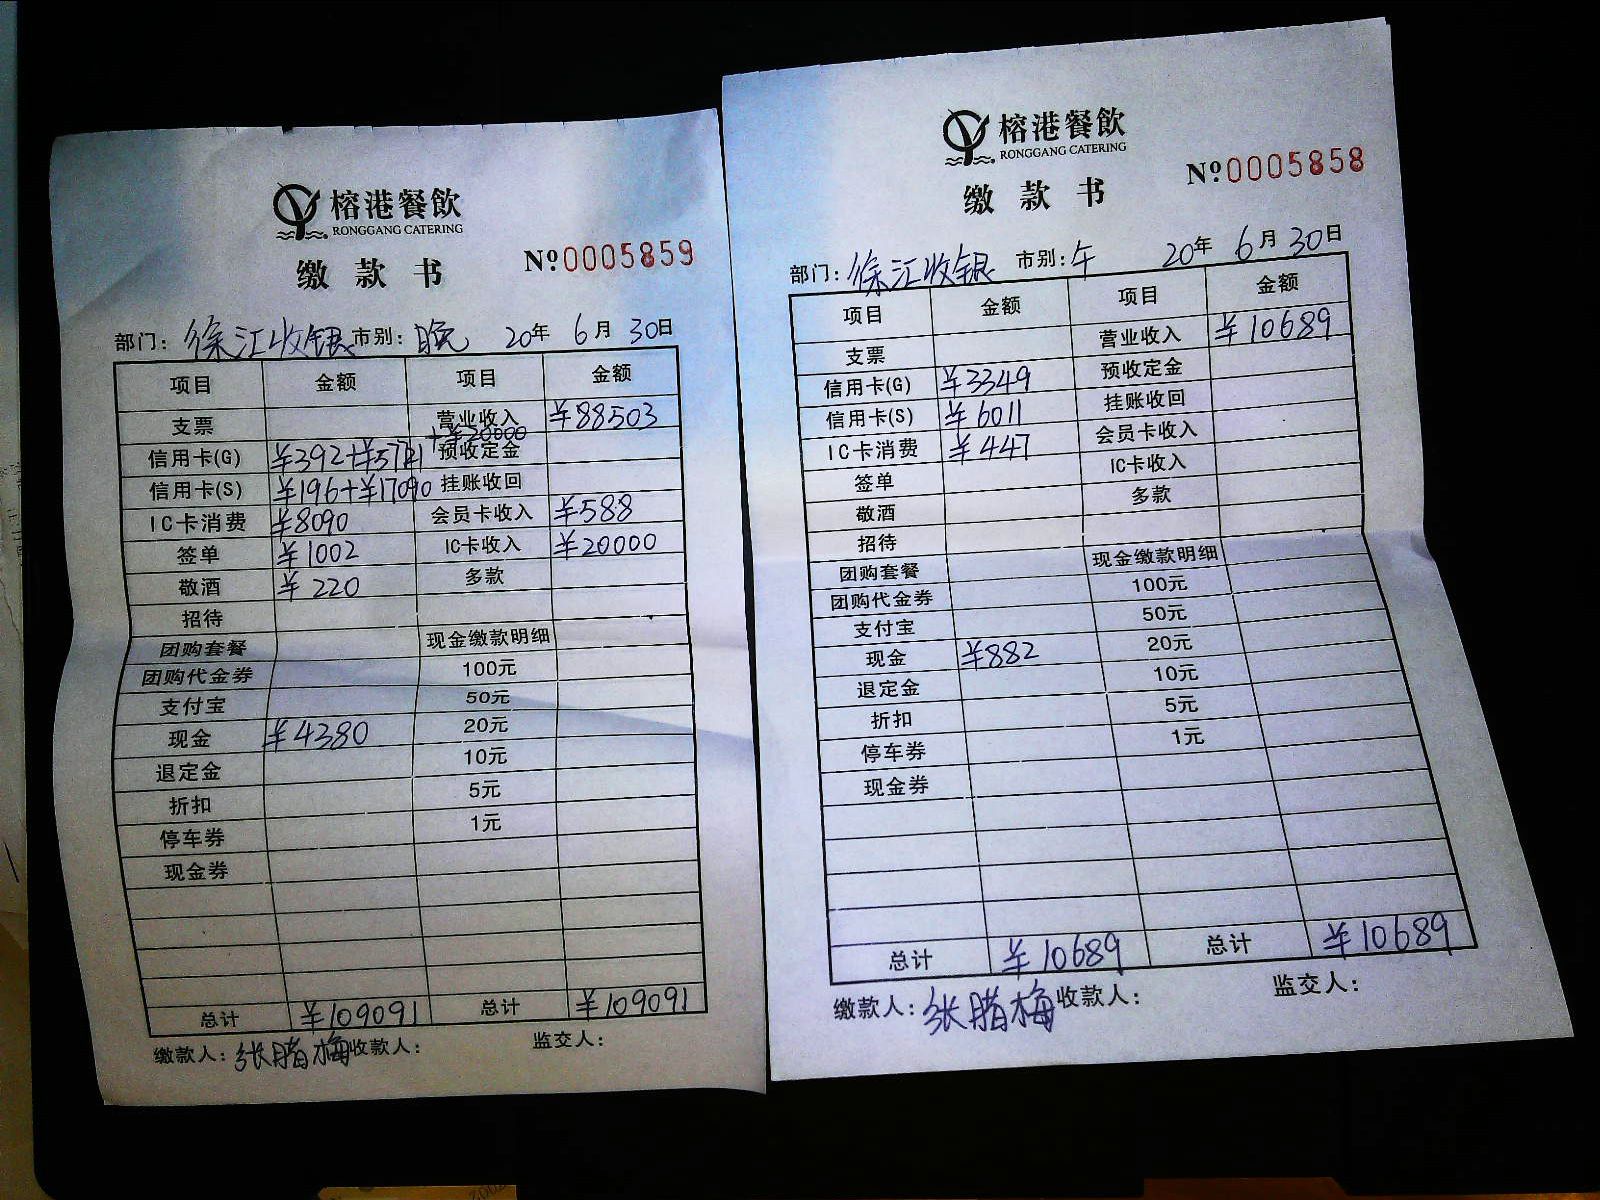 榕港餐飲
RONGGANG CATERING
缴款书
№0005859
部门: 徐汇收银 市别: 晚 20年 6月 30日
项目 金额 项目 金额
支票 营业收入 ¥88503
信用卡(G) ¥392+¥57721+¥20000 预收定金
信用卡(S) ¥196+¥17090 挂账收回
IC卡消费 ¥8090 会员卡收入 ¥588
签单 ¥1002 IC卡收入 ¥20000
敬酒 ¥220 多款
招待
团购套餐 现金缴款明细
团购代金券 100元
支付宝 50元
现金 ¥4380 20元
退定金 10元
折扣 5元
停车券 1元
现金券
总计 ¥109091 总计 ¥109091
缴款人: 张腊梅 收款人: 监交人:
榕港餐飲
RONGGANG CATERING
缴款书
№0005858
部门: 徐汇收银 市别: 午 20年 6月 30日
项目 金额 项目 金额
支票 营业收入 ¥10689
信用卡(G) ¥3349 预收定金
信用卡(S) ¥6011 挂账收回
IC卡消费 ¥447 会员卡收入
签单 IC卡收入
敬酒 多款
招待
团购套餐 现金缴款明细
团购代金券 100元
支付宝 50元
现金 ¥882 20元
退定金 10元
折扣 5元
停车券 1元
现金券
总计 ¥10689 总计 ¥10689
缴款人: 张腊梅 收款人: 监交人: